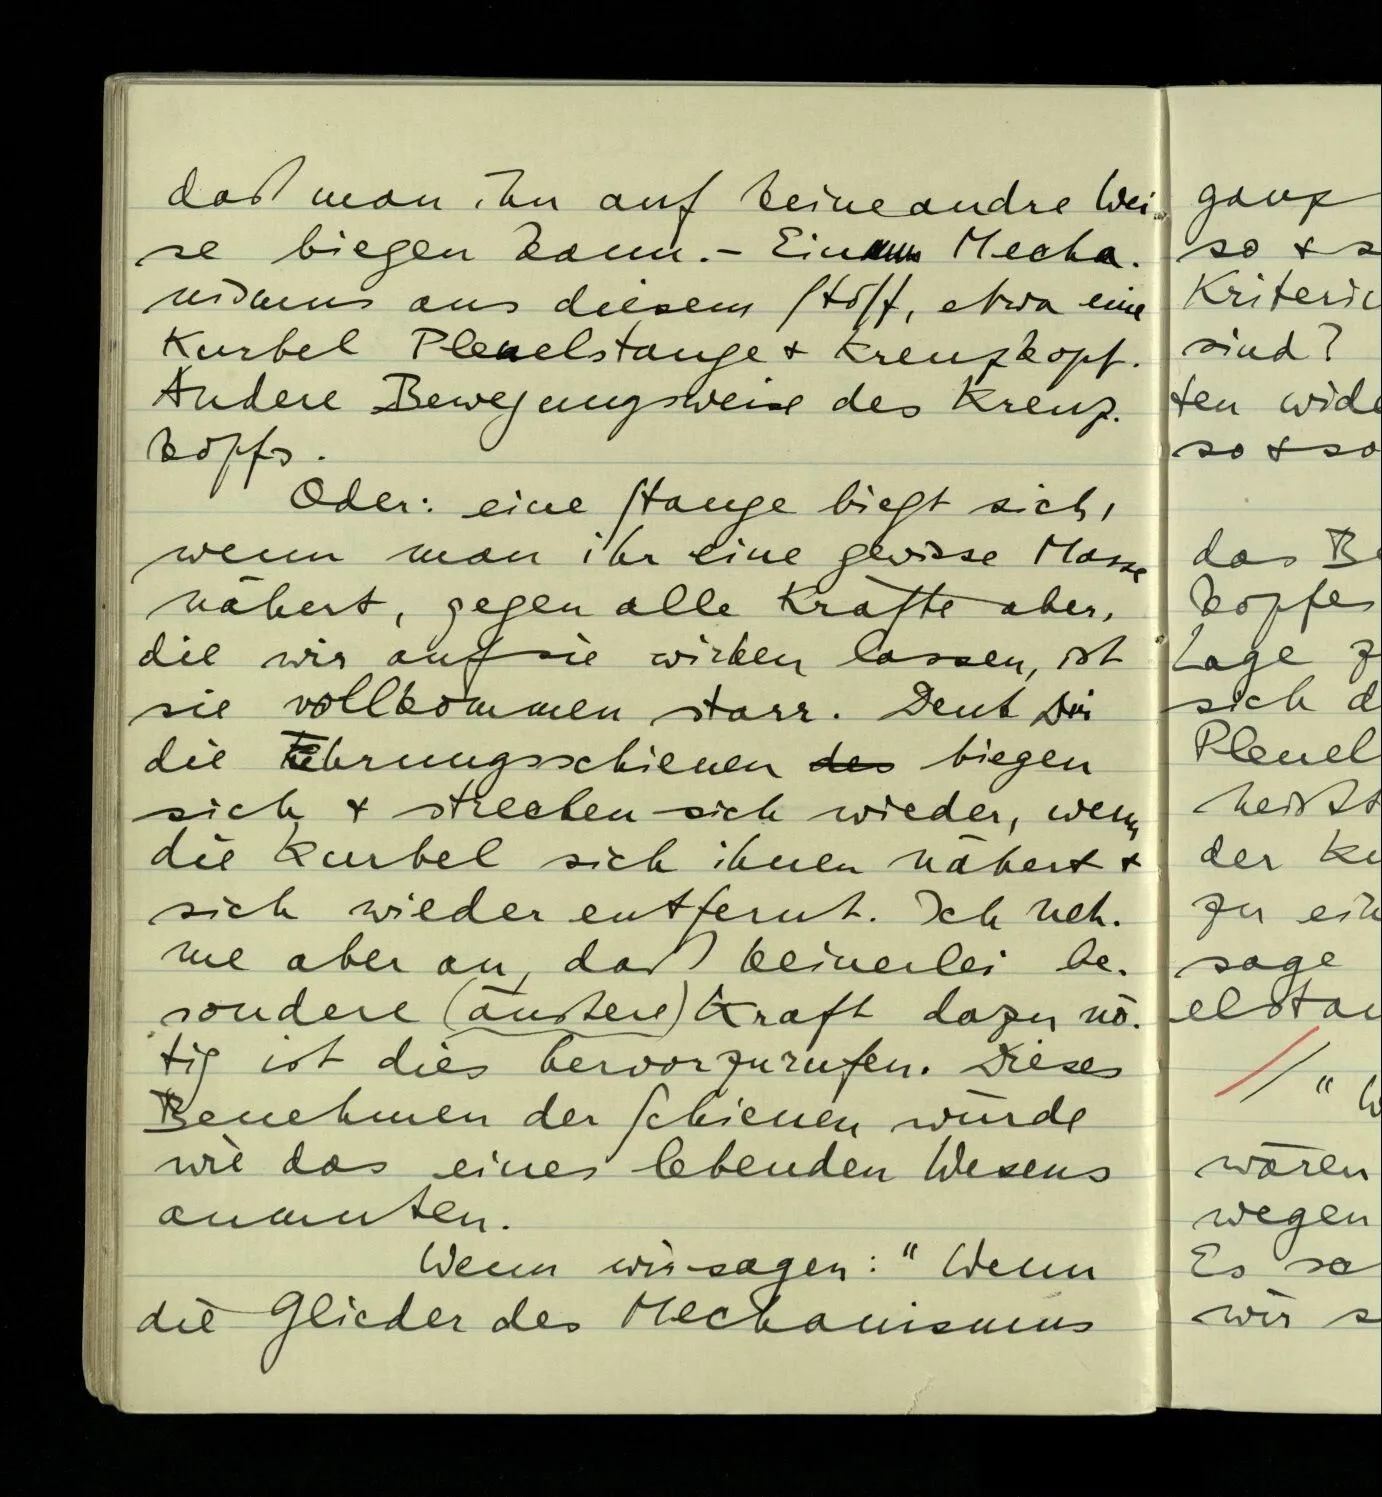 daß man ihn auf keine andre Wei-
se biegen kann. – Ein Mecha-
nismus aus diesem Stoff, etwa eine
Kurbel Pleuelstange & Kreuzkopf.
Andere Bewegungsweise des Kreuz-
kopfs.
Oder: eine Stange biegt sich,
wenn man ihr eine gewisse Masse
nähert, gegen alle Kräfte aber,
die wir auf sie wirken lassen, ist
sie vollkommen starr. Denk Dir
die Führungsschienen des biegen
sich & strecken sich wieder, wenn
die Kurbel sich ihnen nähert &
sich wieder entfernt. Ich neh-
me aber an, daß keinerlei be-
sondere (äußere) Kraft dazu nö-
tig ist dies hervorzurufen. Dieses
Benehmen der Schienen würde
wie das eines lebenden Wesens
anmuten.
Wenn wir sagen: "Wenn
die Glieder des Mechanismus
ganz
so & s
Kriteri
sind?
ten wide
so & so
das Be
kopfes
Lage z
sich d
Pleuel
heißt
der Ku
zu ein
sage
elstan
// "W
wären
wegen
Es sc
wir s